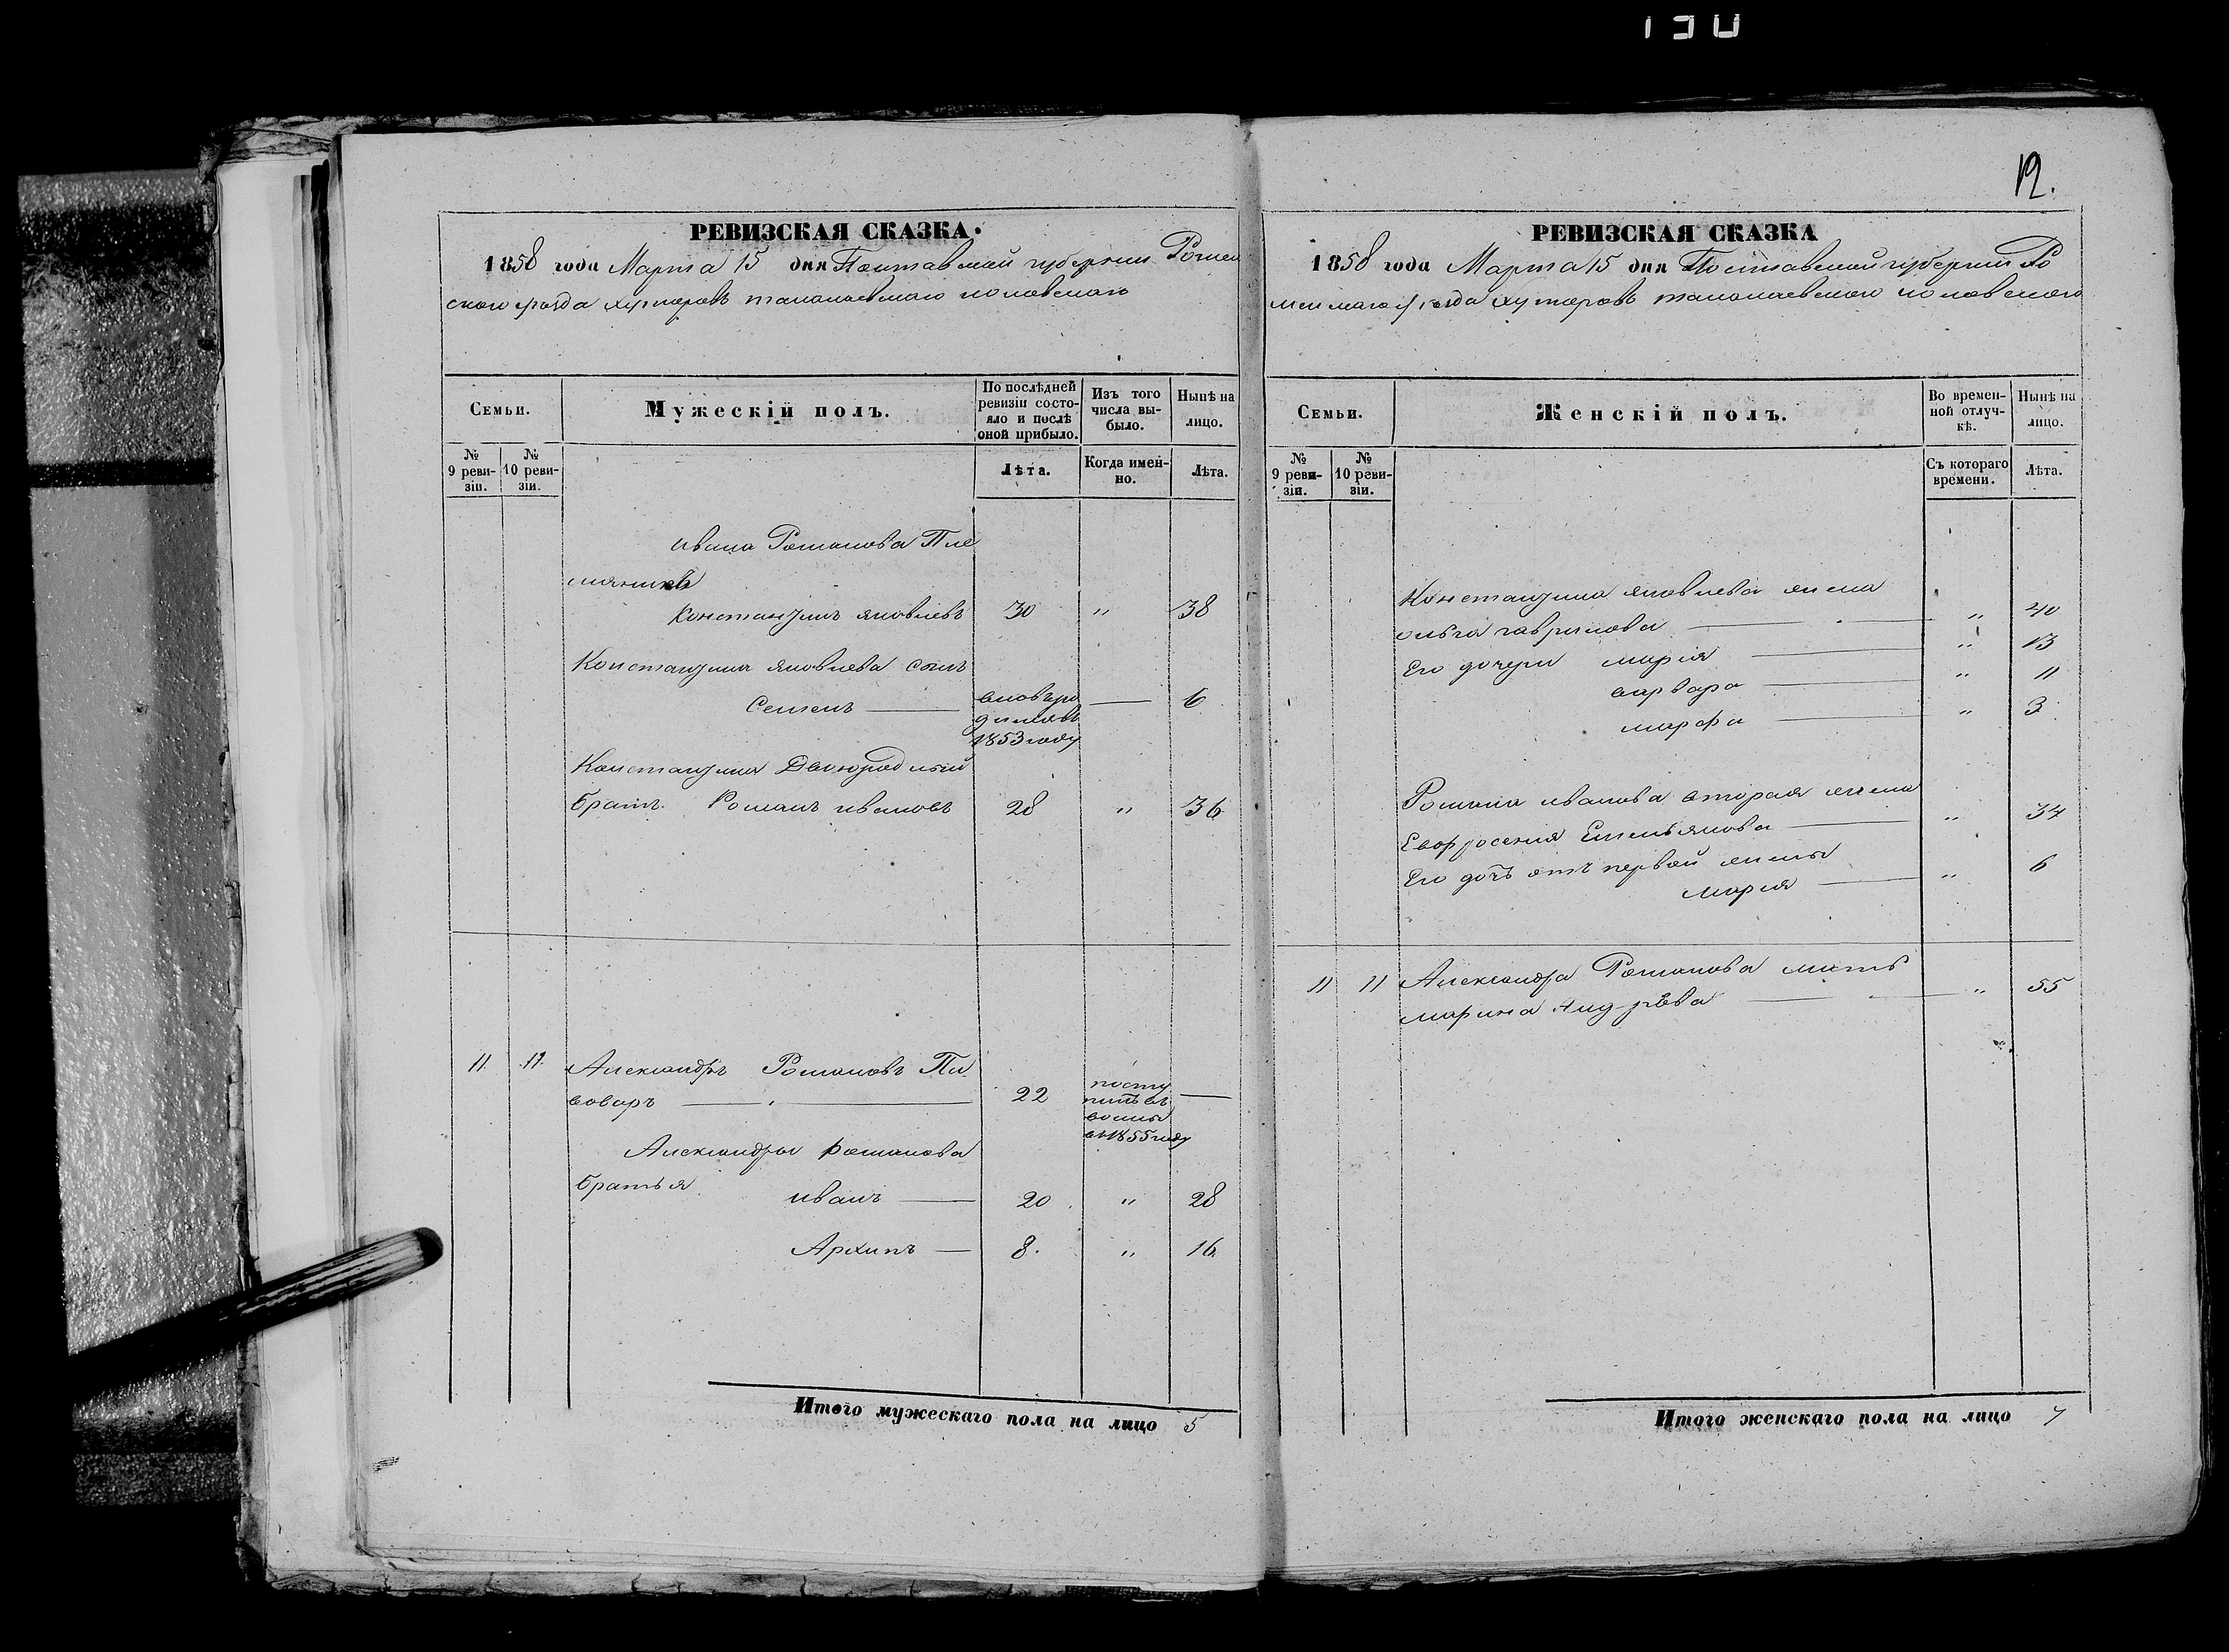 130
12.
РЕВИЗСКАЯ СКАЗКА.
1858 года Марта 15 дня Полтавской губернии Ромен
ского уезда хуторовъ
Семьи.
Мужескій полъ.
По послѣдней ревизіи состо-
яло и послѣ оной прибыло.
Изъ того числа вы-
было.
Нынѣ на лицо.
№ 9 реви-
зіи.
№ 10 реви-
зіи.
Лѣта.
Когда имен-
но.
Лѣта.
Ивана Романова Пле
мяникъ
Константинъ Яковлевъ 30 " 38
Константина Яковлева сынъ
Семенъ — вновь ро — 6
дился въ
1853 году
Константина Двоюродный
братъ Романъ Ивановъ 28 " 36
11 11 Александръ Романовъ Пи
воваръ — 22 посту —
пилъ въ
воины
въ 1855 году
Александра Романова
братья Иванъ — 20 " 28
Архипъ — 8. " 16
Итого мужескаго пола на лицо 5
РЕВИЗСКАЯ СКАЗКА
1858 года Марта 15 дня Полтавской губернии Ро
менского уезда хуторовъ
Семьи.
Женскій полъ.
Во времен-
ной отлуч-
кѣ.
Нынѣ на лицо.
№ 9 реви-
зіи.
№ 10 реви-
зіи.
Съ котораго времени.
Лѣта.
Константина Яковлева жена
Ольга Гаврилова — " 40
Его дочери Мария — " 13
Варвара — " 11
Марфа — " 3
Романа Иванова вторая жена
Евфросения Емельянова — " 34
Его дочь отъ первой жены
Мария — " 6
11 11 Александра Романова мать
Марина Андрѣева — " 55
Итого женскаго пола на лицо 7